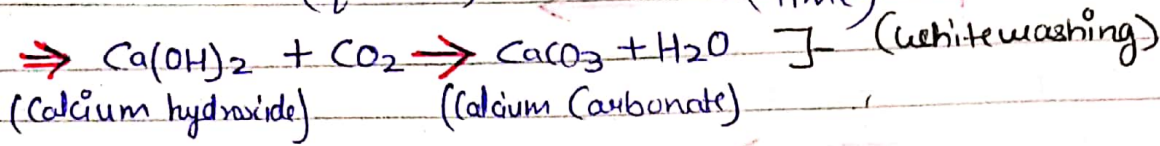 ⇒ Ca(OH)2 + CO2 → CaCO3 + H2O ]- (whitewashing)
(Calcium hydroxide) (Calcium Carbonate)